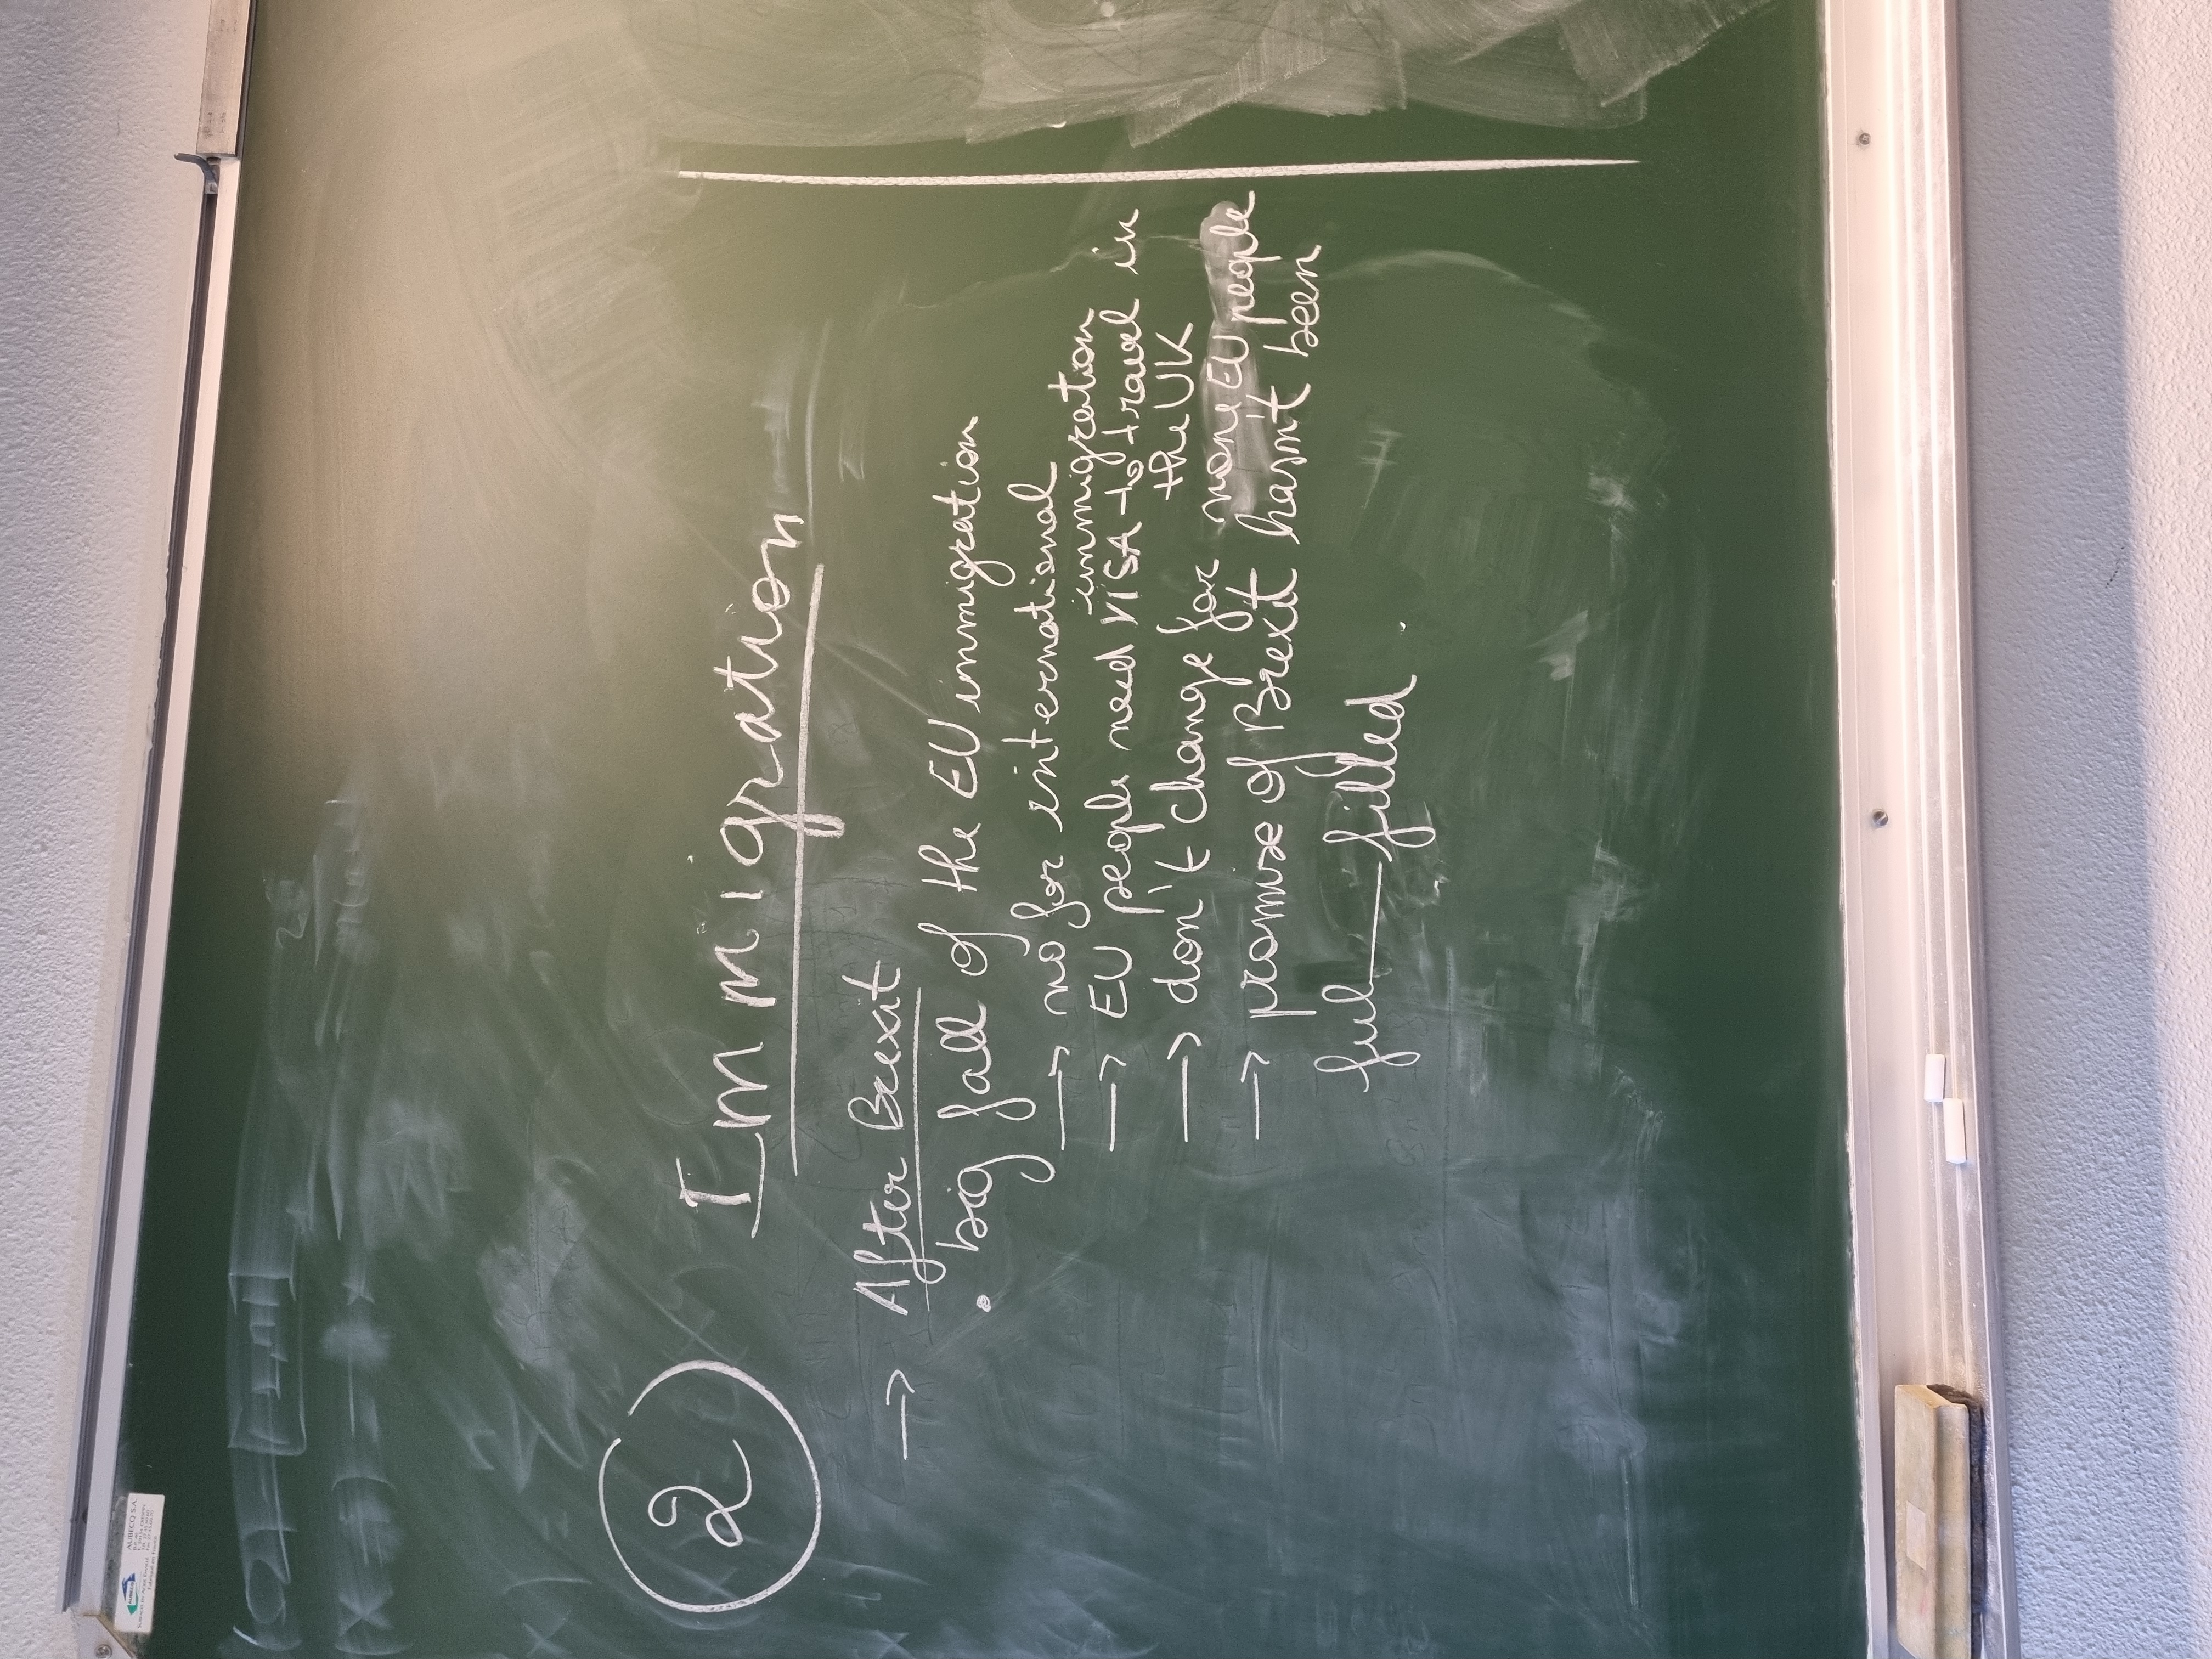 2
Immigration
→ After Brexit
• big fall of the EU immigration
→ no for international
immigration
→ EU people need VISA to travel in
the UK
→ don't change for non EU people
→ promise of Brexit hasn't been
ful—filled
AUBECQ S.A.